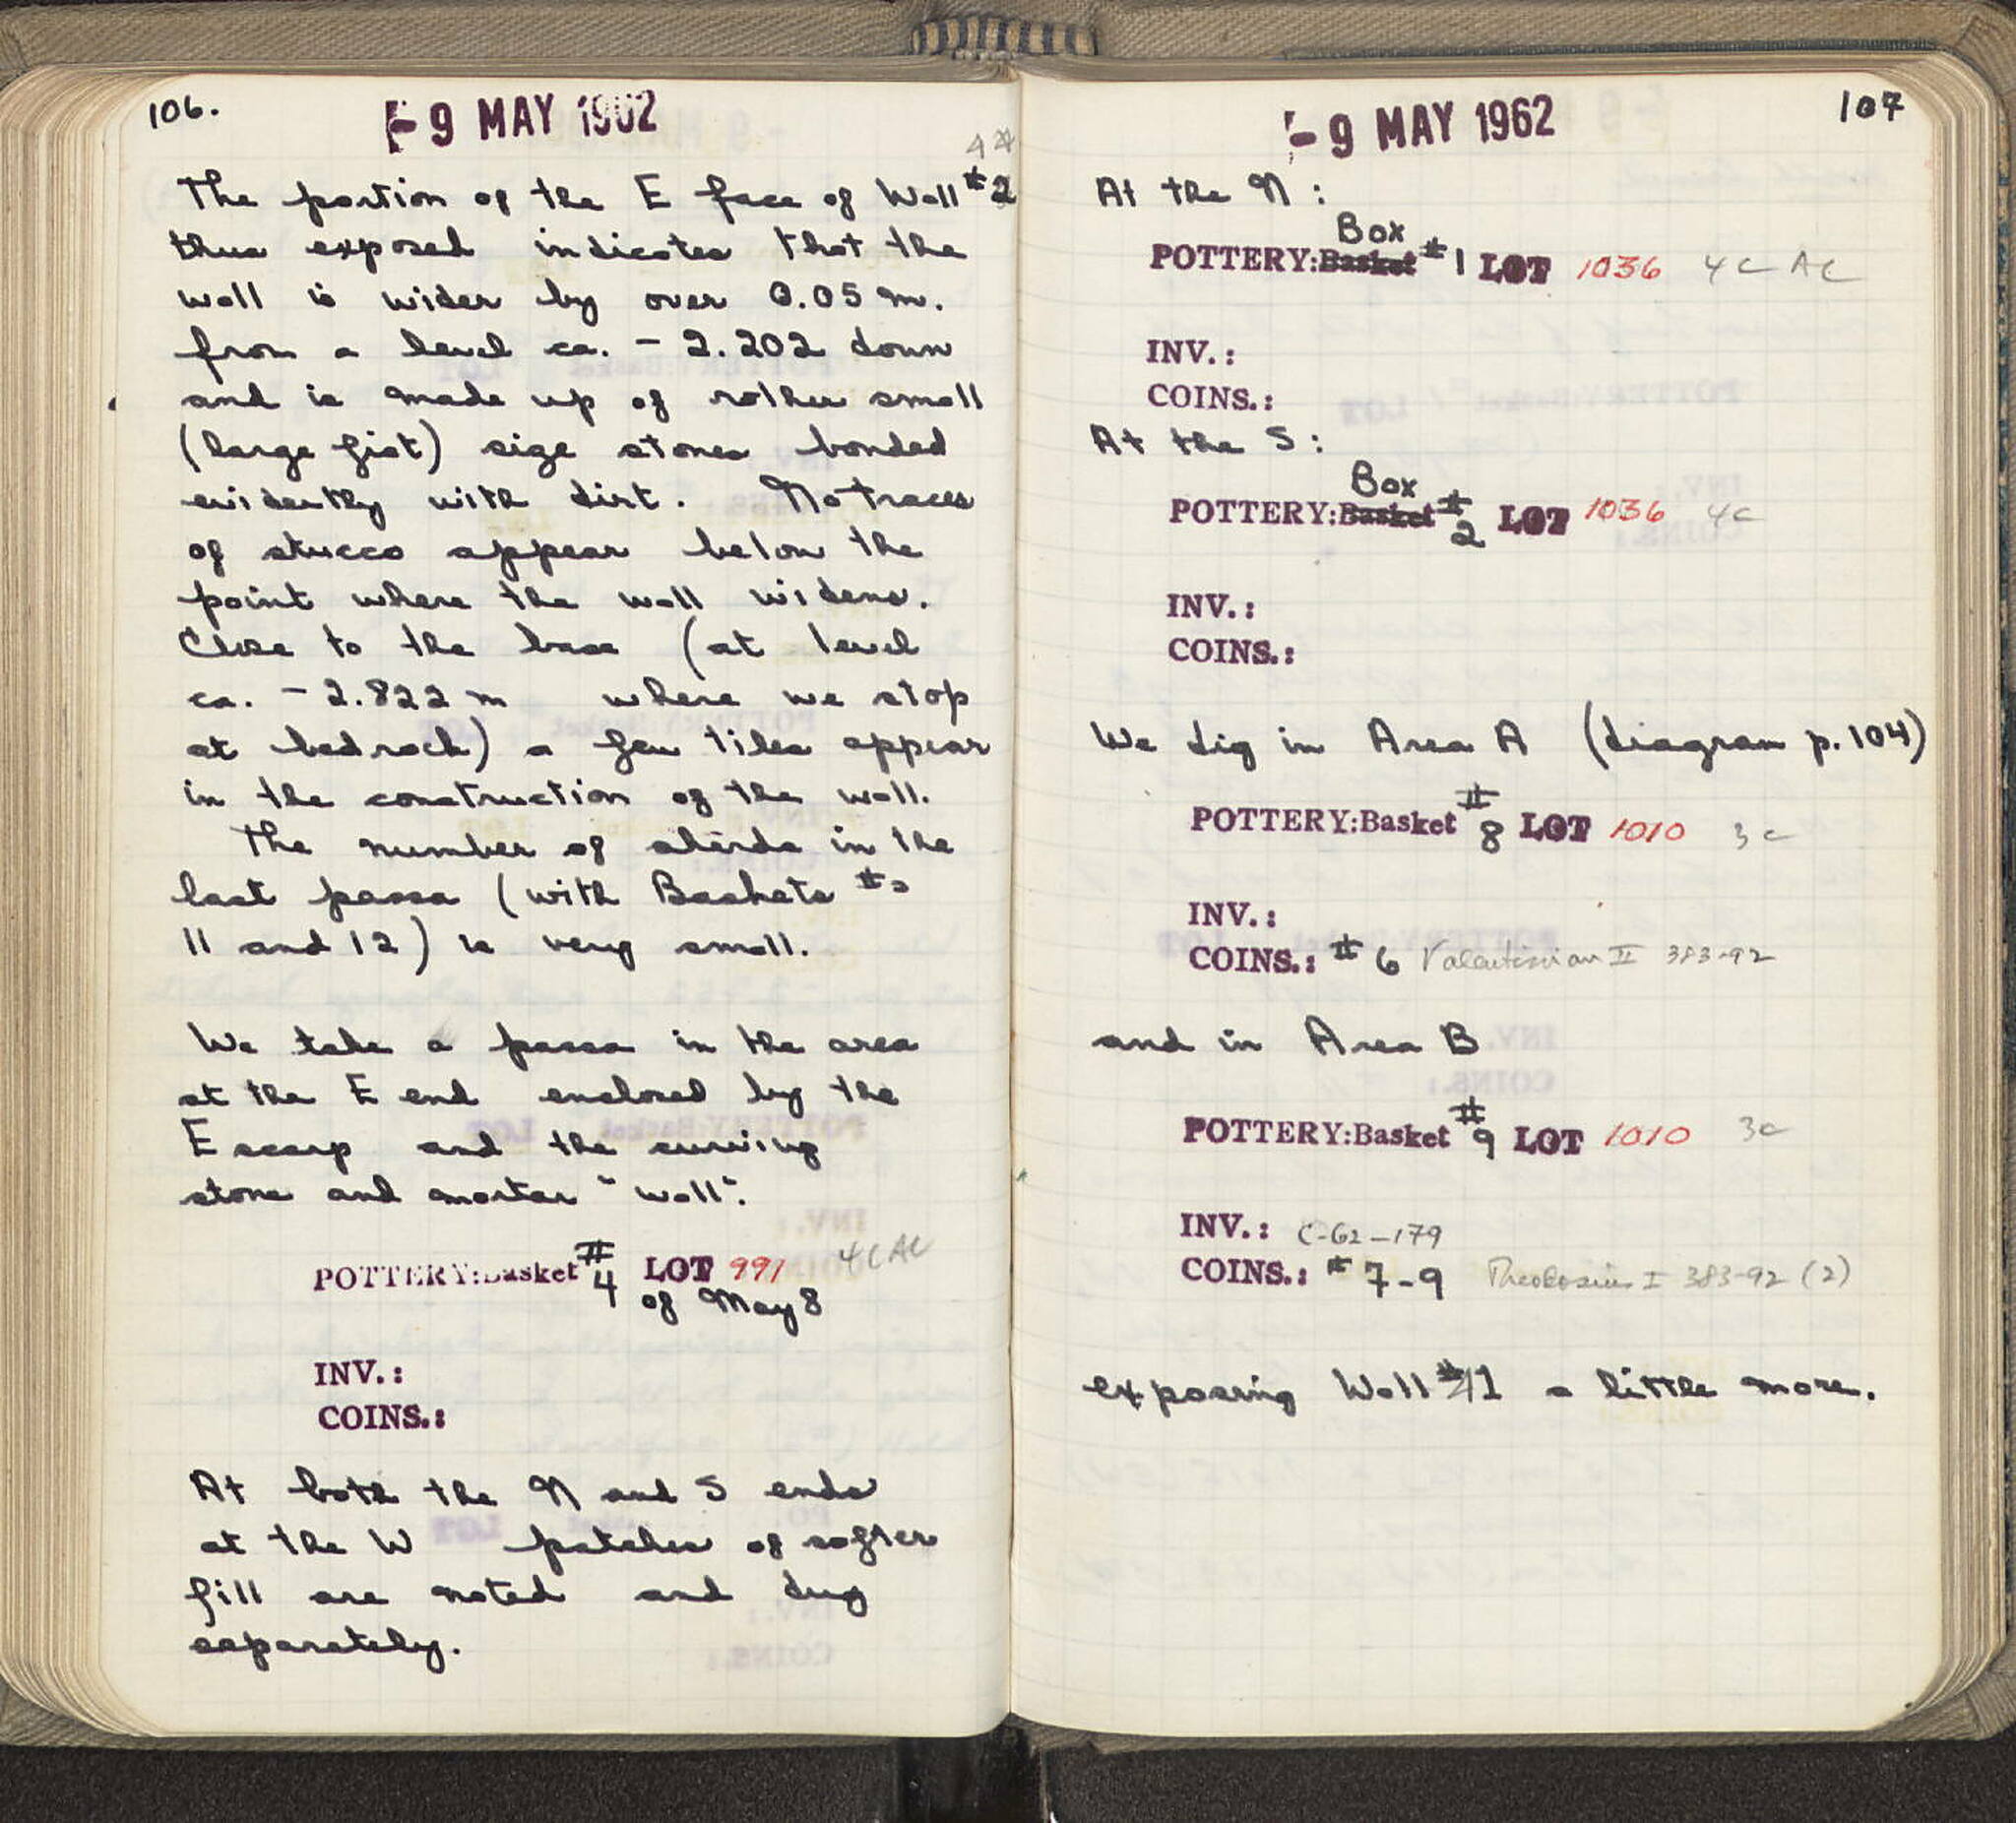 106.
- 9 MAY 1962
44
The portion of the E face of Wall #2
thus exposed indicates that the
wall is wider by over 0.05 m.
from a level ca. - 2.202 down
and is made up of rather small
(large fist) size stones bonded
evidently with dirt. No traces
of stucco appear below the
point where the wall widens.
Close to the base (at level
ca. - 2.822 m where we stop
at bedrock) a few tiles appear
in the construction of the wall.
The number of sherds in the
last passa (with Baskets #s
11 and 12) is very small.
We take a passa in the area
at the E end enclosed by the
E scarp and the curving
stone and mortar "wall".
POTTERY:Basket #4 LOT 991 4C AC
of May 8
INV.:
COINS.:
At both the N and S ends
at the W patches of softer
fill are noted and dug
separately.
- 9 MAY 1962
107
At the N:
Box
POTTERY:Basket #1 LOT 1036 4C AC
INV.:
COINS.:
At the S:
Box
POTTERY:Basket #2 LOT 1036 4C
INV.:
COINS.:
We dig in Area A (diagram p. 104)
POTTERY:Basket #8 LOT 1010 3C
INV.:
COINS.: #6 Valentinian II 383-92
and in Area B
POTTERY:Basket #9 LOT 1010 3C
INV.: C-62-179
COINS.: #7-9 Theodosius I 383-92 (2)
exposing Wall #1 a little more.